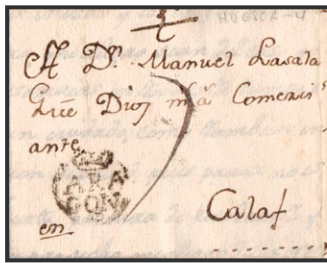 HUESCA-4
A Dn. Manuel Lasala
Que Dios m.s a.s Comersi
ante
ARA
GON
en Calaf